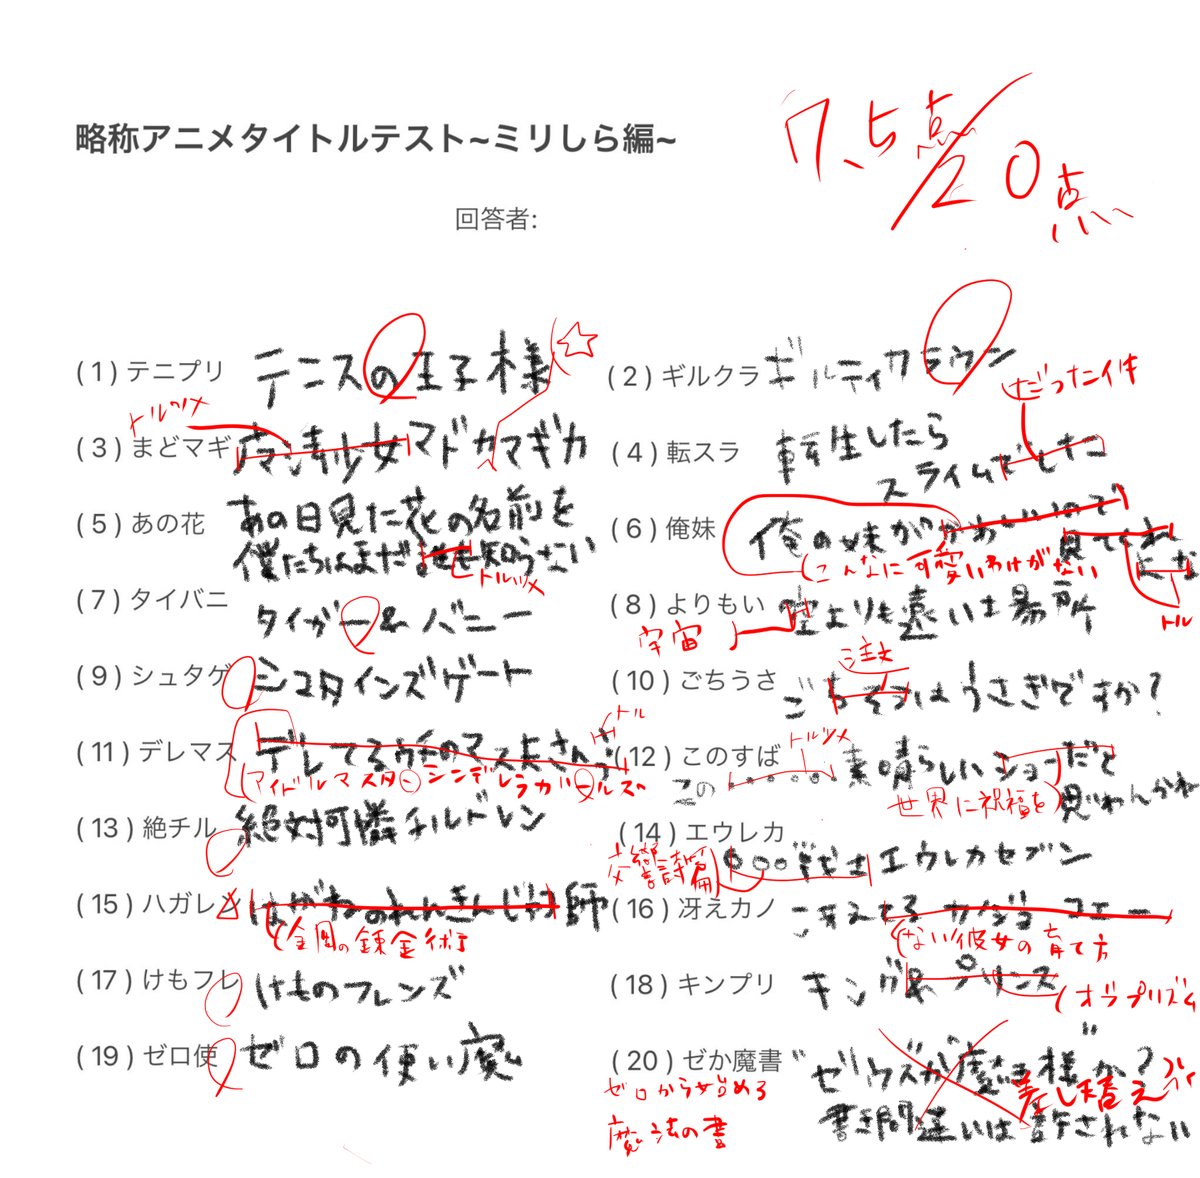 略称アニメタイトルテスト~ミリしら編~
7.5点/20点
回答者:
(1)テニプリ テニスの王子様
(2)ギルクラ ギルティクラウン
だった件
トルツメ
(3)まどマギ 魔法少女マドカマギカ
(4)転スラ 転生したら
スライムでした
(5)あの花 あの日見た花の名前を
僕たちはまだ知らない
トルツメ
(6)俺妹 俺の妹がかわいいので
見てくれ
こんなに可愛いわけがない
トル
(7)タイバニ タイガー&バニー
(8)よりもい 空よりも遠い場所
宇宙
(9)シュタゲ シュタインズゲート
注文
(10)ごちうさ ごちそうはうさぎですか?
トル
(11)デレマス デレてるウチのマス夫さん
アイドルマスターシンデレラガールズ
トルツメ
(12)このすば この……素晴らしいショーだと
世界に祝福を
見ていわんかね
(13)絶チル 絶対可憐チルドレン
(14)エウレカ エウレカセブン
交響詩篇
(15)ハガレン はがねのれんきんじゅつ師
鋼の錬金術
(16)冴えカノ 冴えてる カノジョ
ない彼女の育て方
(17)けもフレ けものフレンズ
(18)キンプリ キング&プリンス
オブプリズム
(19)ゼロ使 ゼロの使い魔
(20)ゼか魔書 "ゼウスが魔王様か?"
差し替え
書き間違いは許されない
ゼロから始める
魔法の書